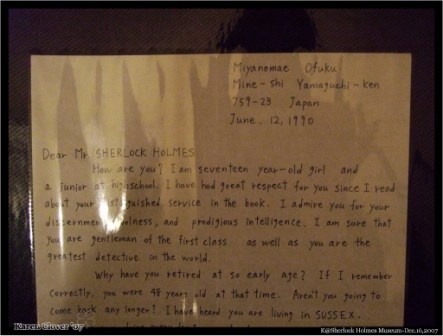 Miyanomae Ofuku
Mine-shi Yamaguchi-ken
759-23 Japan
June, 12, 1990
Dear Mr. SHERLOCK HOLMES
How are you? I am seventeen year-old girl and
a junior at highschool. I have had great respect for you since I read
about your distinguished service in the book. I admire you for your
discernment, coolness, and prodigious intelligence. I am sure that
you are gentleman of the first class as well as you are the
greatest detective in the world.
Why have you retired at so early age? If I remember
correctly, you were 48 years old at that time. Aren't you going to
come back any longer? I have heard you are living in SUSSEX.
Karen Clover '07
K@Sherlock Holmes Museum-Dec.16,2007